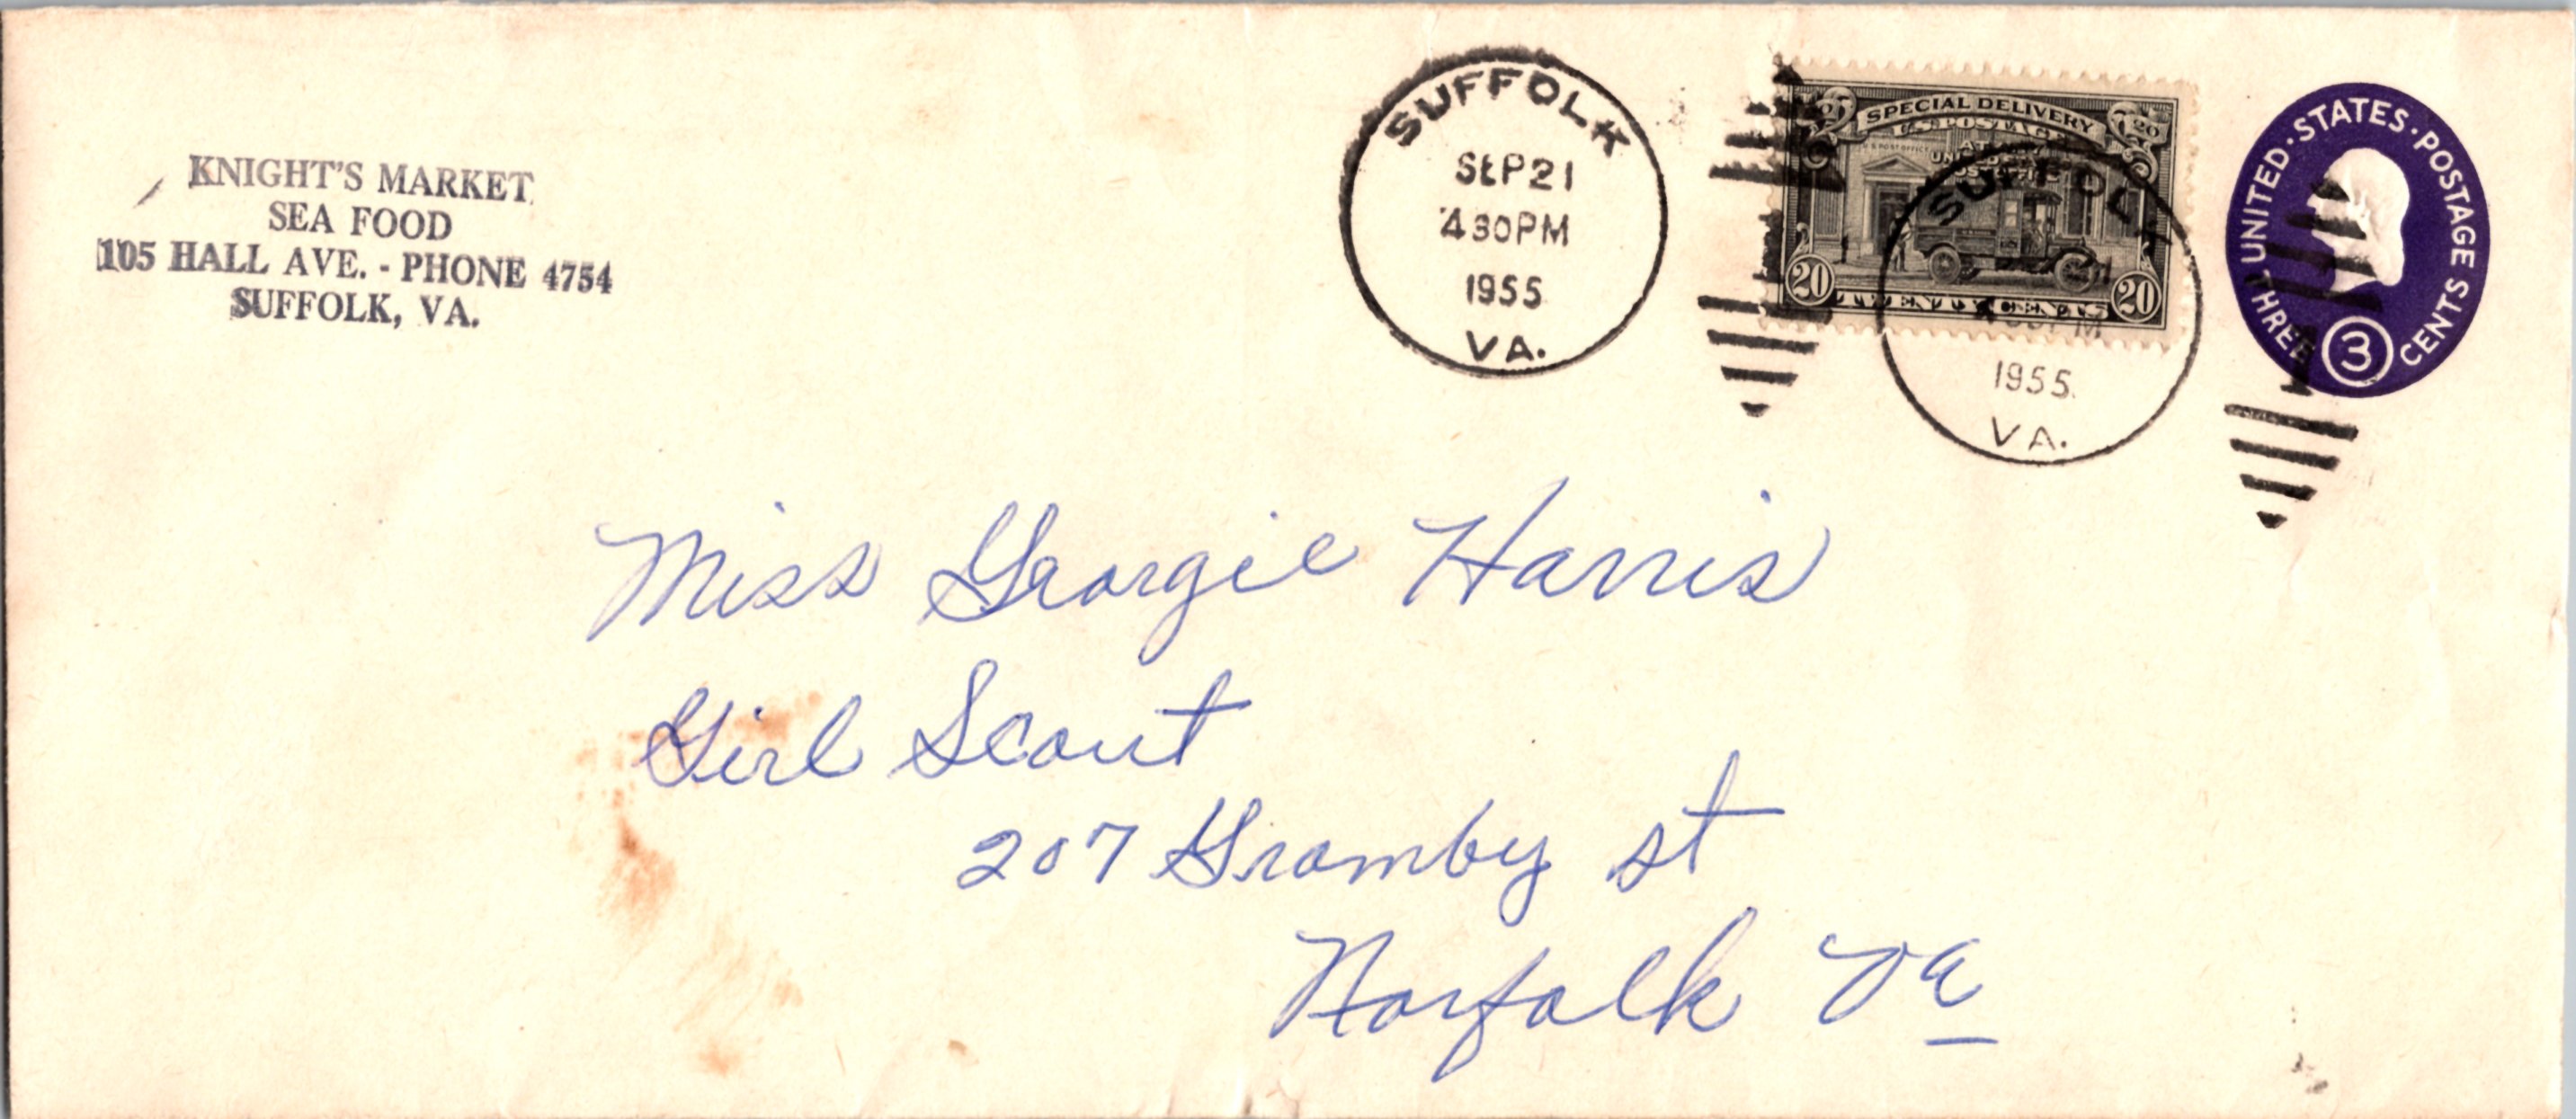 KNIGHT'S MARKET
SEA FOOD
105 HALL AVE. - PHONE 4754
SUFFOLK, VA.
SUFFOLK
SEP 21
430PM
1955
VA.
20 SPECIAL DELIVERY 20
U.S. POSTAGE
U.S. POST OFFICE
AT ANY
UNITED STATES
POST OFFICE
20 TWENTY CENTS 20
SUFFOLK
PM
1955
VA.
UNITED · STATES · POSTAGE
THREE 3 CENTS
Miss Georgie Harris
Girl Scout
207 Gramby st
Norfolk Va